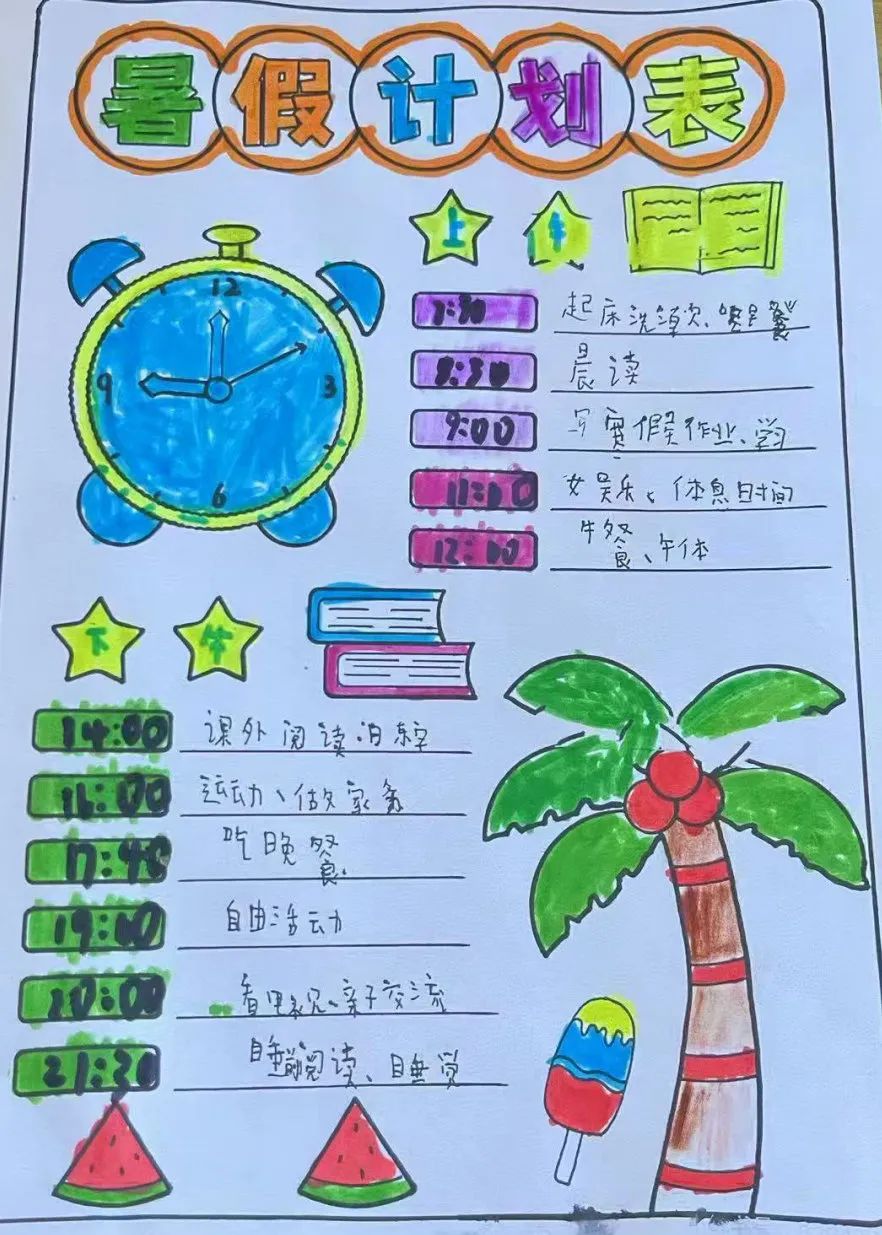 暑假计划表
12
9
3
6
上午
7:30 起床洗漱、早餐
8:30 晨读
9:00 写寒假作业、学
11:00 娱乐、休息时间
12:00 午餐、午休
下午
14:00 课外阅读
16:00 运动、做家务
17:40 吃晚餐
19:00 自由活动
20:00 看电视、亲子交流
21:30 睡前阅读、睡觉